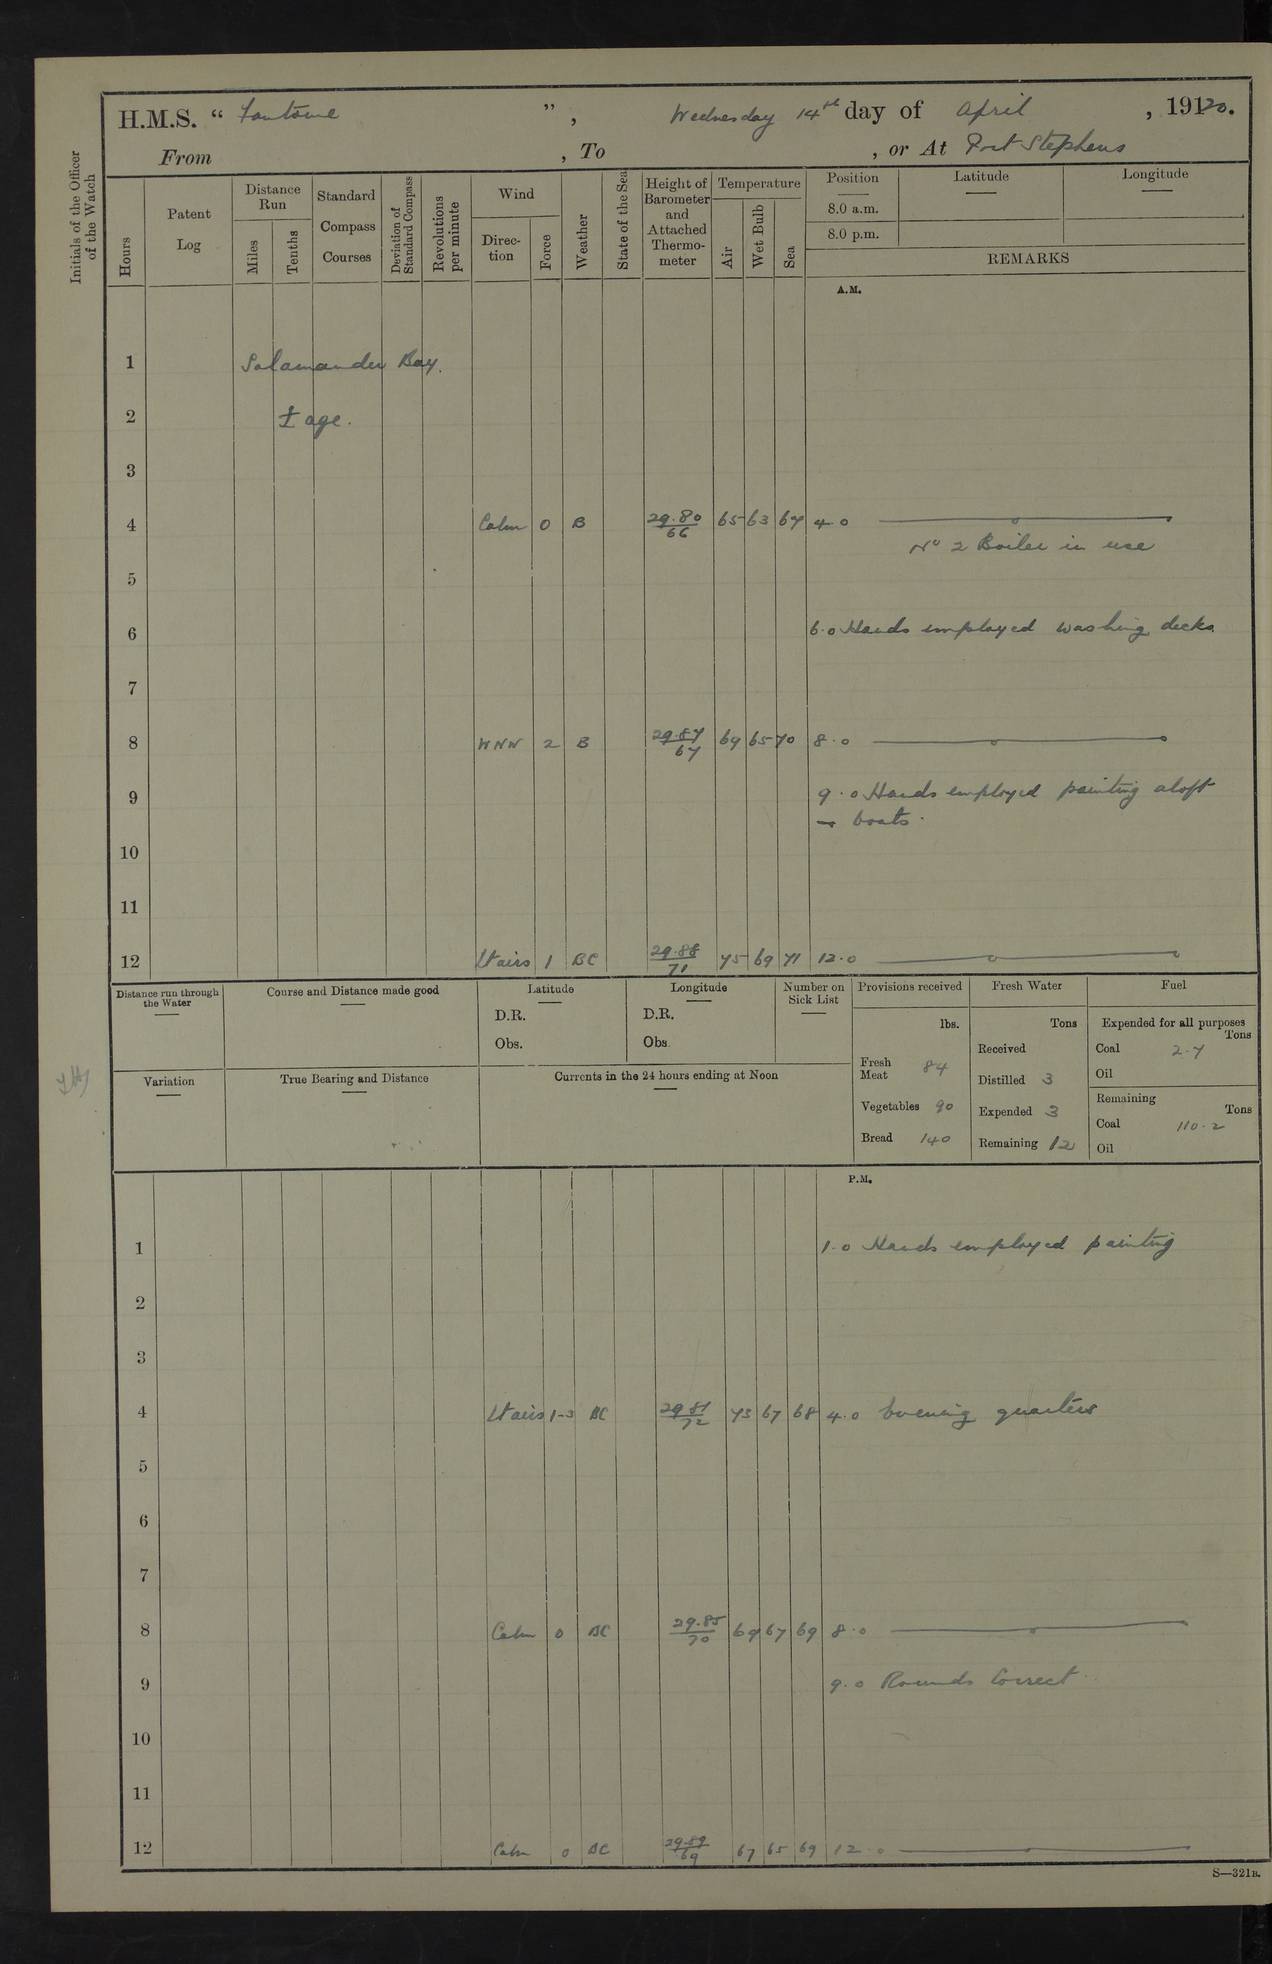 H.M.S. “ Fantome ”, Wednesday 14th day of April , 19120.
From , To , or At Port Stephens
Initials of the Officer of the Watch
Hours
Patent Log
Distance Run
Miles
Tenths
Standard Compass Courses
Deviation of Standard Compass
Revolutions per minute
Wind
Direction
Force
Weather
State of the Sea
Height of Barometer and Attached Thermometer
Temperature
Air
Wet Bulb
Sea
Position
Latitude
Longitude
8.0 a.m.
8.0 p.m.
REMARKS
A.M.
1 Salamander Bay.
2 age.
3
4 Calm 0 B 29.80/66 65 63 67 4.0
No 2 Boiler in use
5
6 6.0 Hands employed washing decks
7
8 WNW 2 B 29.87/67 69 65 70 8.0
9 9.0 Hands employed painting aloft
boats.
10
11
12 Lt airs 1 BC 29.88/71 75 69 71 12.0
Distance run through the Water
Course and Distance made good
Latitude
D.R.
Obs.
Longitude
D.R.
Obs.
Number on Sick List
Provisions received
lbs.
Fresh Meat 84
Vegetables 90
Bread 140
Fresh Water
Tons
Received
Distilled 3
Expended 3
Remaining 12
Fuel
Expended for all purposes
Tons
Coal 2.7
Oil
Remaining
Tons
Coal 110.2
Oil
Variation
True Bearing and Distance
Currents in the 24 hours ending at Noon
P.M.
1 1.0 Hands employed painting
2
3
4 Lt airs 1-3 BC 29.81/72 73 67 68 4.0 Evening quarters
5
6
7
8 Calm 0 BC 29.85/70 69 67 69 8.0
9 9.0 Rounds Correct
10
11
12 Calm 0 BC 29.89/69 67 65 69 12.0
S—321B.